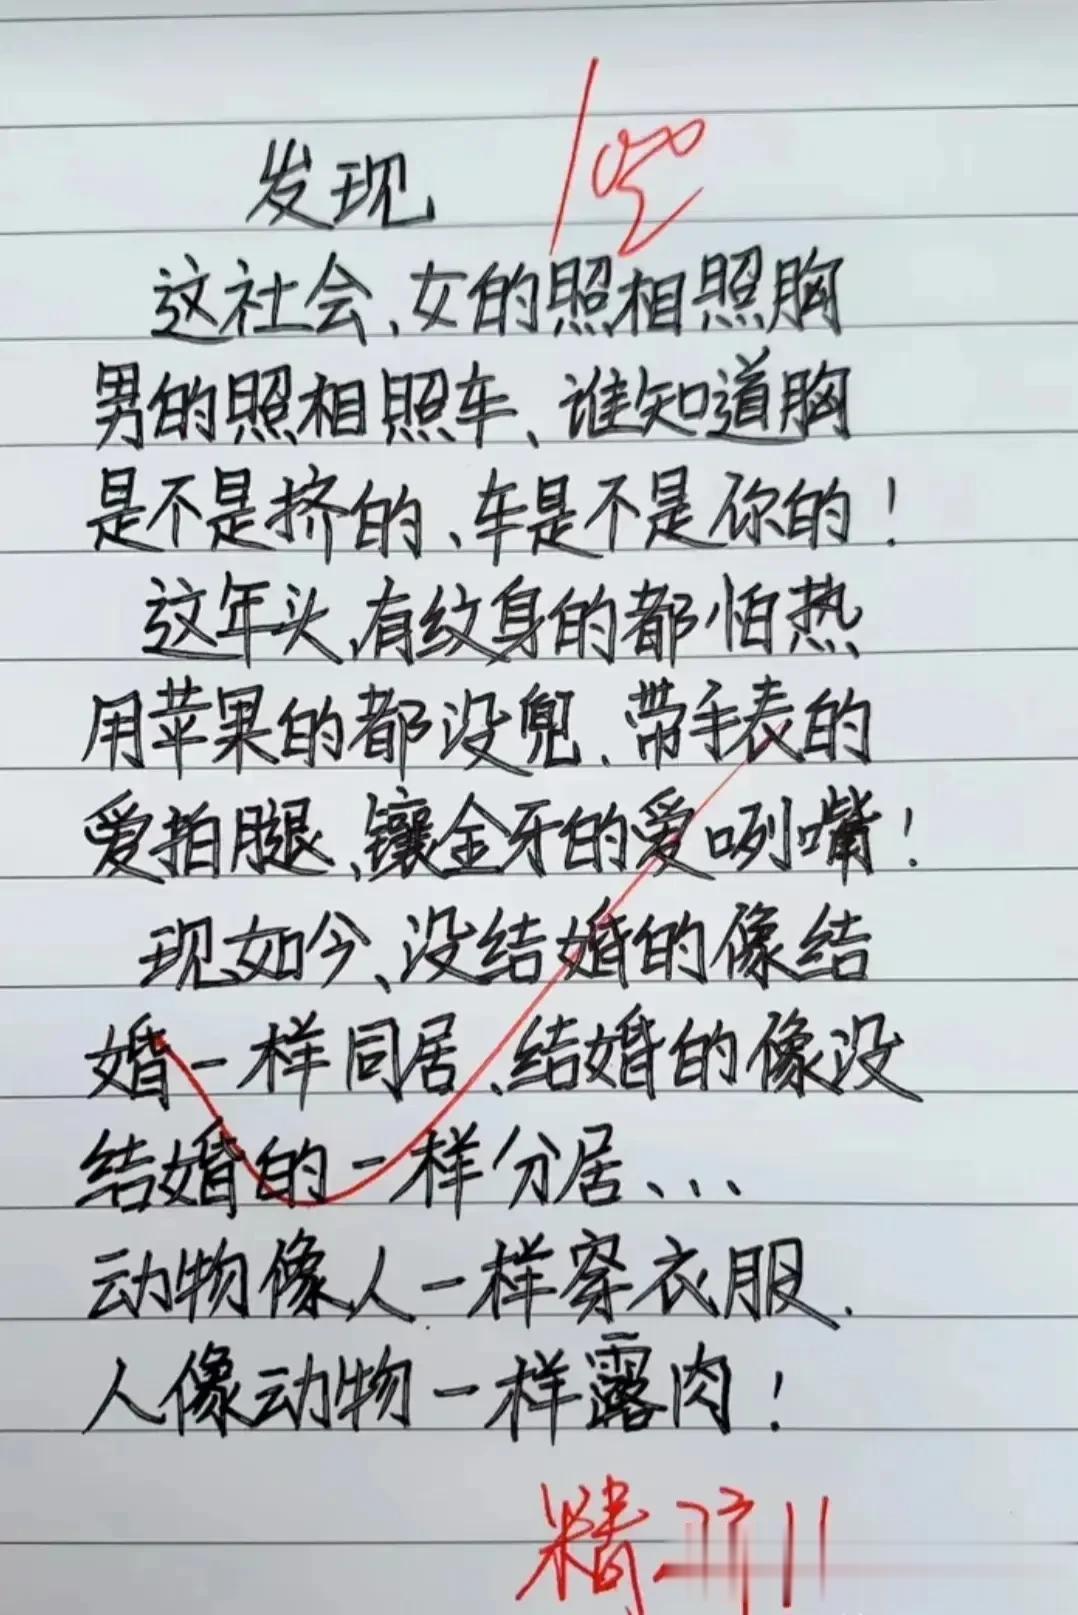 发现
100
这社会、女的照相照胸
男的照相照车、谁知道胸
是不是挤的、车是不是你的！
这年头、有纹身的都怕热
用苹果的都没兜、带手表的
爱拍腿、镶金牙的爱咧嘴！
现如今、没结婚的像结
婚一样同居、结婚的像没
结婚的一样分居、...
动物像人一样穿衣服.
人像动物一样露肉！
精